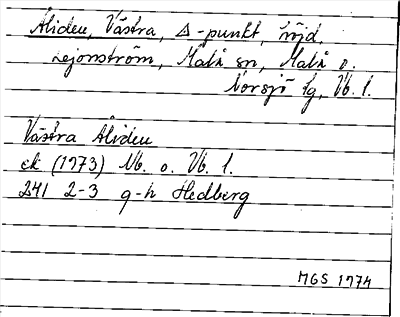 Åliden, Västra, Δ-punkt, höjd,
Lejonström, Malå sn, Malå o.
Norsjö tg, Vb. l.
Västra Åliden
ek (1973) Nb. o. Vb. l.
241 2-3 g-h Hedberg
MGS 1974